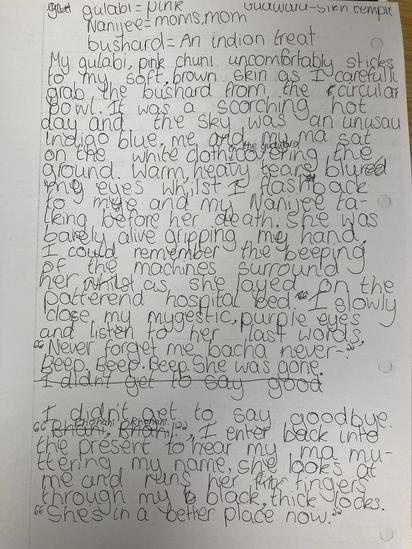 gulabi = pink Gudwara-Sikh temple
Nanijee=moms, mom
bushard=An indian treat
My gulabi, pink chuni uncomfortably sticks
to my soft, brown skin as I carefull
grab the bushard from the circular
bowl. It was a scorching hot
day and the sky was an unusau
indigo blue, me and my ma sat
in the gudwara
on the white cloth covering the
ground. Warm, heavy tears blured
my eyes whilst I flashback
to me and my Nanijee ta-
lking before her death. She was
barely alive gripping my hand,
I could remember the beeping
of the machines surround
her whilst as, she layed on the
patterend hospital bed. I slowly
close my mygestic, purple eyes
and listen to her last words,
"Never forget me bacha never-"
Beep. Beep. Beep. She was gone.
I didn't get to say good
I didn't get to say goodbye.
"Bhahi, Bhahi!", I enter back into
the present to hear my ma mu-
ttering my name, she looks at
me and runs her fingers
through my black, thick locks.
"She's in a better place now."